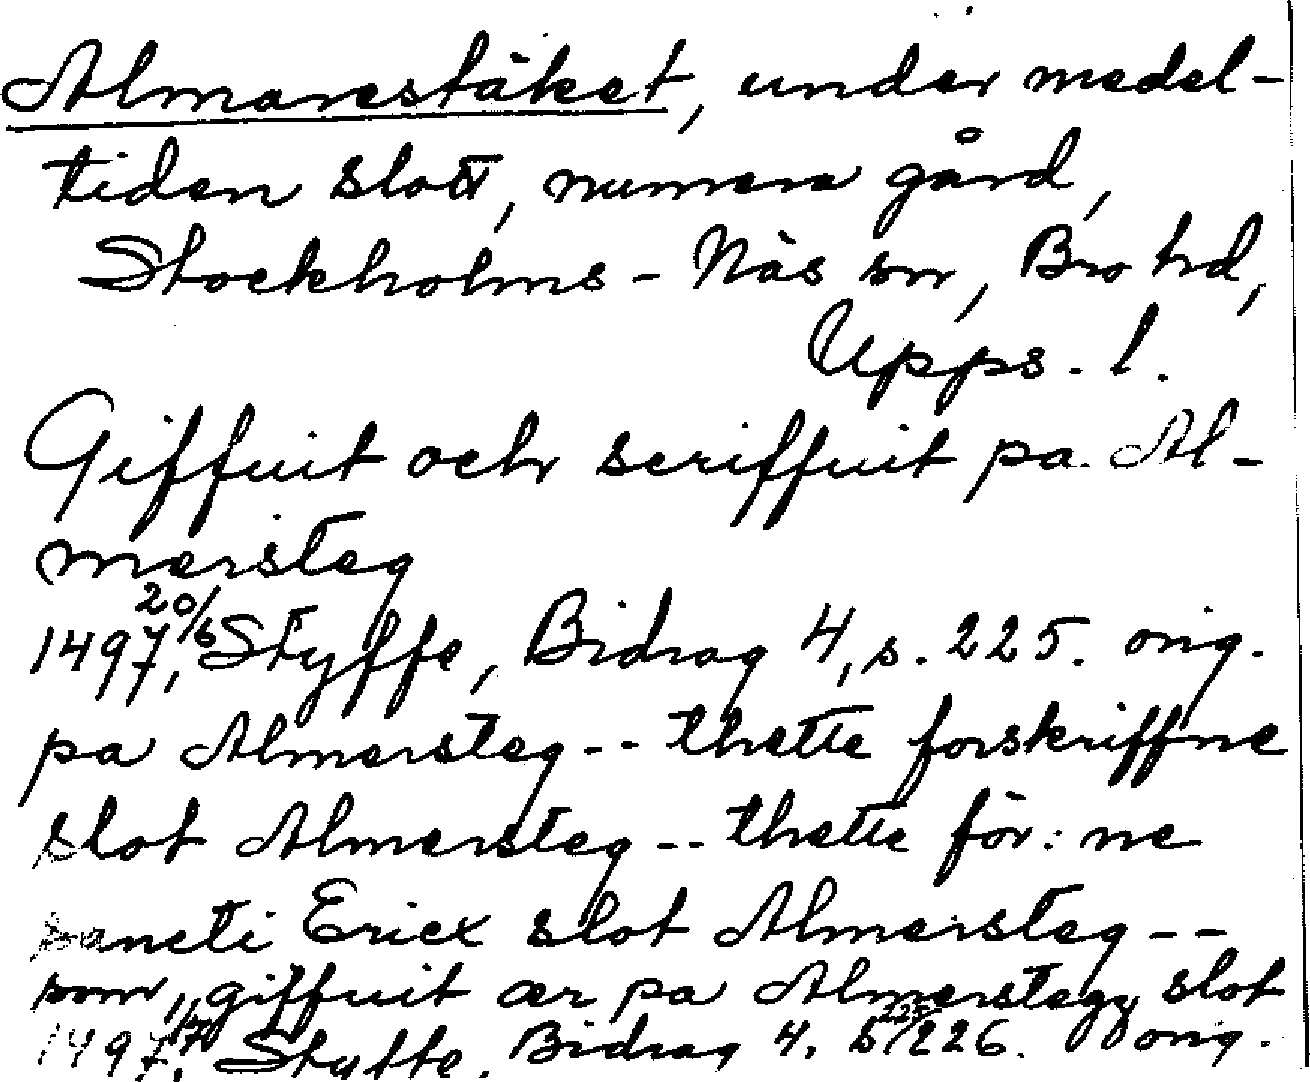 Almarestäket, under medel-
tiden slott, numera gård,
Stockholms-Näs sn, Bro hd,
Upps. l.
Giffuit och scriffuit pa Al-
mersteg
1497 20/6, Styffe, Bidrag 4, s. 225. orig.
pa Almersteg -- thette forskriffne
slot Almersteg -- thette för:ne
sancti Ericx slot Almersteg --
som, giffuit ær pa Almerstegx slot
1497, Styffe, Bidrag 4, s 226. orig.